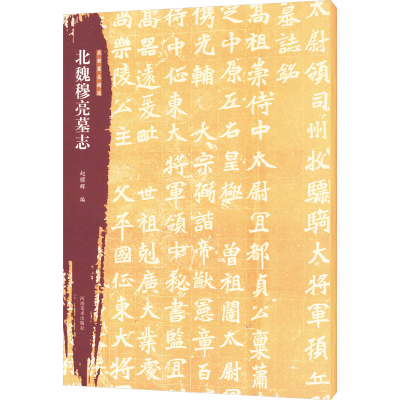 太尉領司州牧驃騎大將軍頓丘
墓誌銘
高祖崇侍中太尉宜都貞公稟蕭
中原左右皇極 曾祖闥太尉
儁光輔 大宗弼諧帝猷憲章
中征東大將軍領中秘書監宜
器遠爰毗 世祖剋廣大業
尚樂陵公主 父平國征東大
北魏穆亮墓志
赵耀辉 编
河南美术出版社